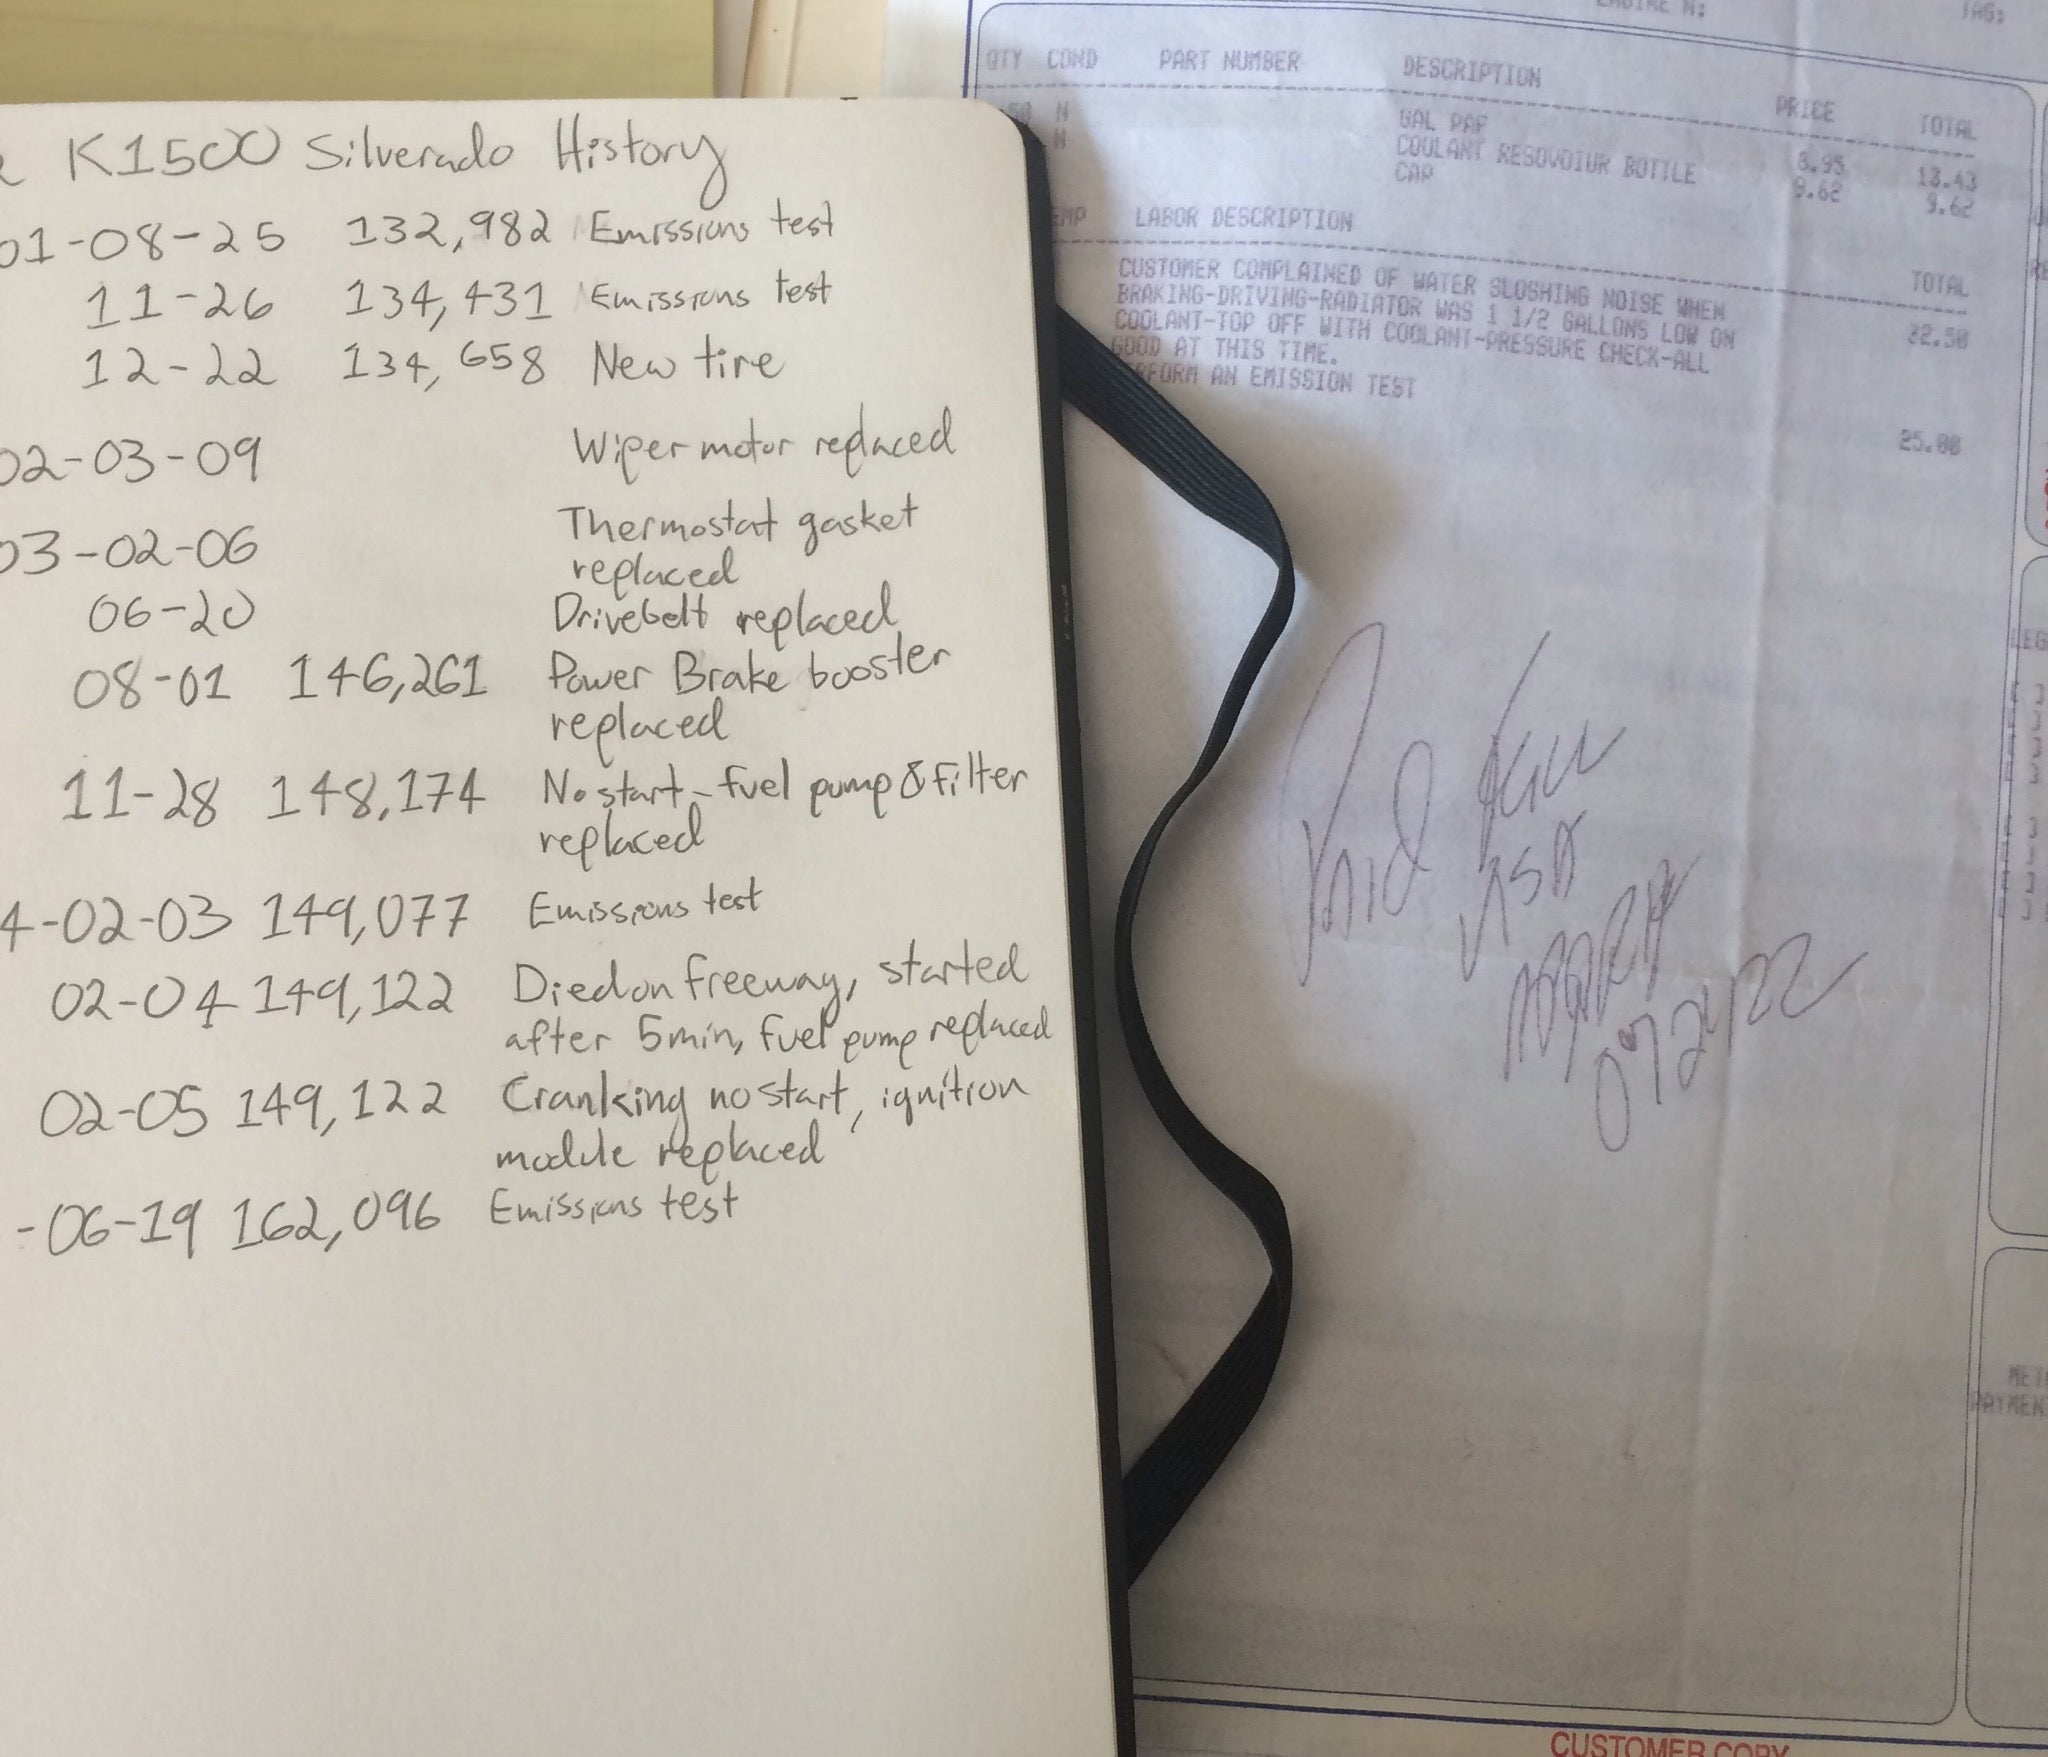 K1500 Silverado History
01-08-25 132,982 Emissions test
11-26 134,431 Emissions test
12-22 134,658 New tire
02-03-09 Wiper motor replaced
03-02-06 Thermostat gasket
replaced
06-20 Drivebelt replaced
08-01 146,261 Power Brake booster
replaced
11-28 148,174 No start - fuel pump & filter
replaced
4-02-03 149,077 Emissions test
02-04 149,122 Died on freeway, started
after 5min, fuel pump replaced
02-05 149,122 Cranking no start, ignition
module replaced
-06-19 162,096 Emissions test
ENGINE N: TAG:
QTY COND PART NUMBER DESCRIPTION PRICE TOTAL
50 N GAL PAF 8.95 13.43
N COOLANT RESOVOIUR BOTTLE 9.62 9.62
CAP
EMP LABOR DESCRIPTION TOTAL
CUSTOMER COMPLAINED OF WATER SLOSHING NOISE WHEN 32.50
BRAKING-DRIVING-RADIATOR WAS 1 1/2 GALLONS LOW ON
COOLANT-TOP OFF WITH COOLANT-PRESSURE CHECK-ALL
GOOD AT THIS TIME.
ERFORM AN EMISSION TEST 25.00
Paid
VISA
CUSTOMER COPY